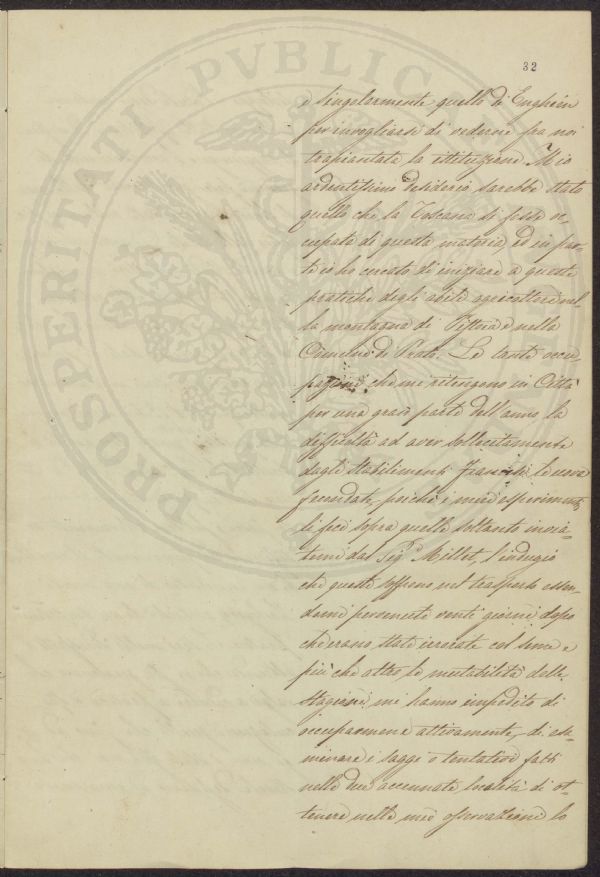 32
PROSPERITATI PVBLICAE
e singolarmente quello di Enghein
per invogliarsi di vederne fra noi
trapiantata la istituzione. Mio
ardentissimo desiderio sarebbe stato
quello che la Toscana si fosse oc-
cupata di questa materia, ed in par-
te io ho cercato di iniziare a queste
pratiche degli abili agricoltori nel-
la montagna di Pistoia e nella
di Prato. Le tante occu-
pazioni che mi ritengono in Città
per una gran parte dell'anno, la
difficoltà ad aver sollecitamente
dagli stabilimenti Francesi le uova
fecondate, poichè i miei esperimenti
li feci sopra quelle soltanto invia-
temi dal Sig.r Millet, l'indugio
che queste soffrono nel trasporto essen-
domi pervenute venti giorni dopo
che erano state irrorate col seme e
più che altro, le mutabilità delle
stagioni, mi hanno impedito di
occuparmene attivamente, di esa-
minare i saggi o tentativi fatti
nelle due accennate località di ot-
tenere nelle mie osservazioni lo